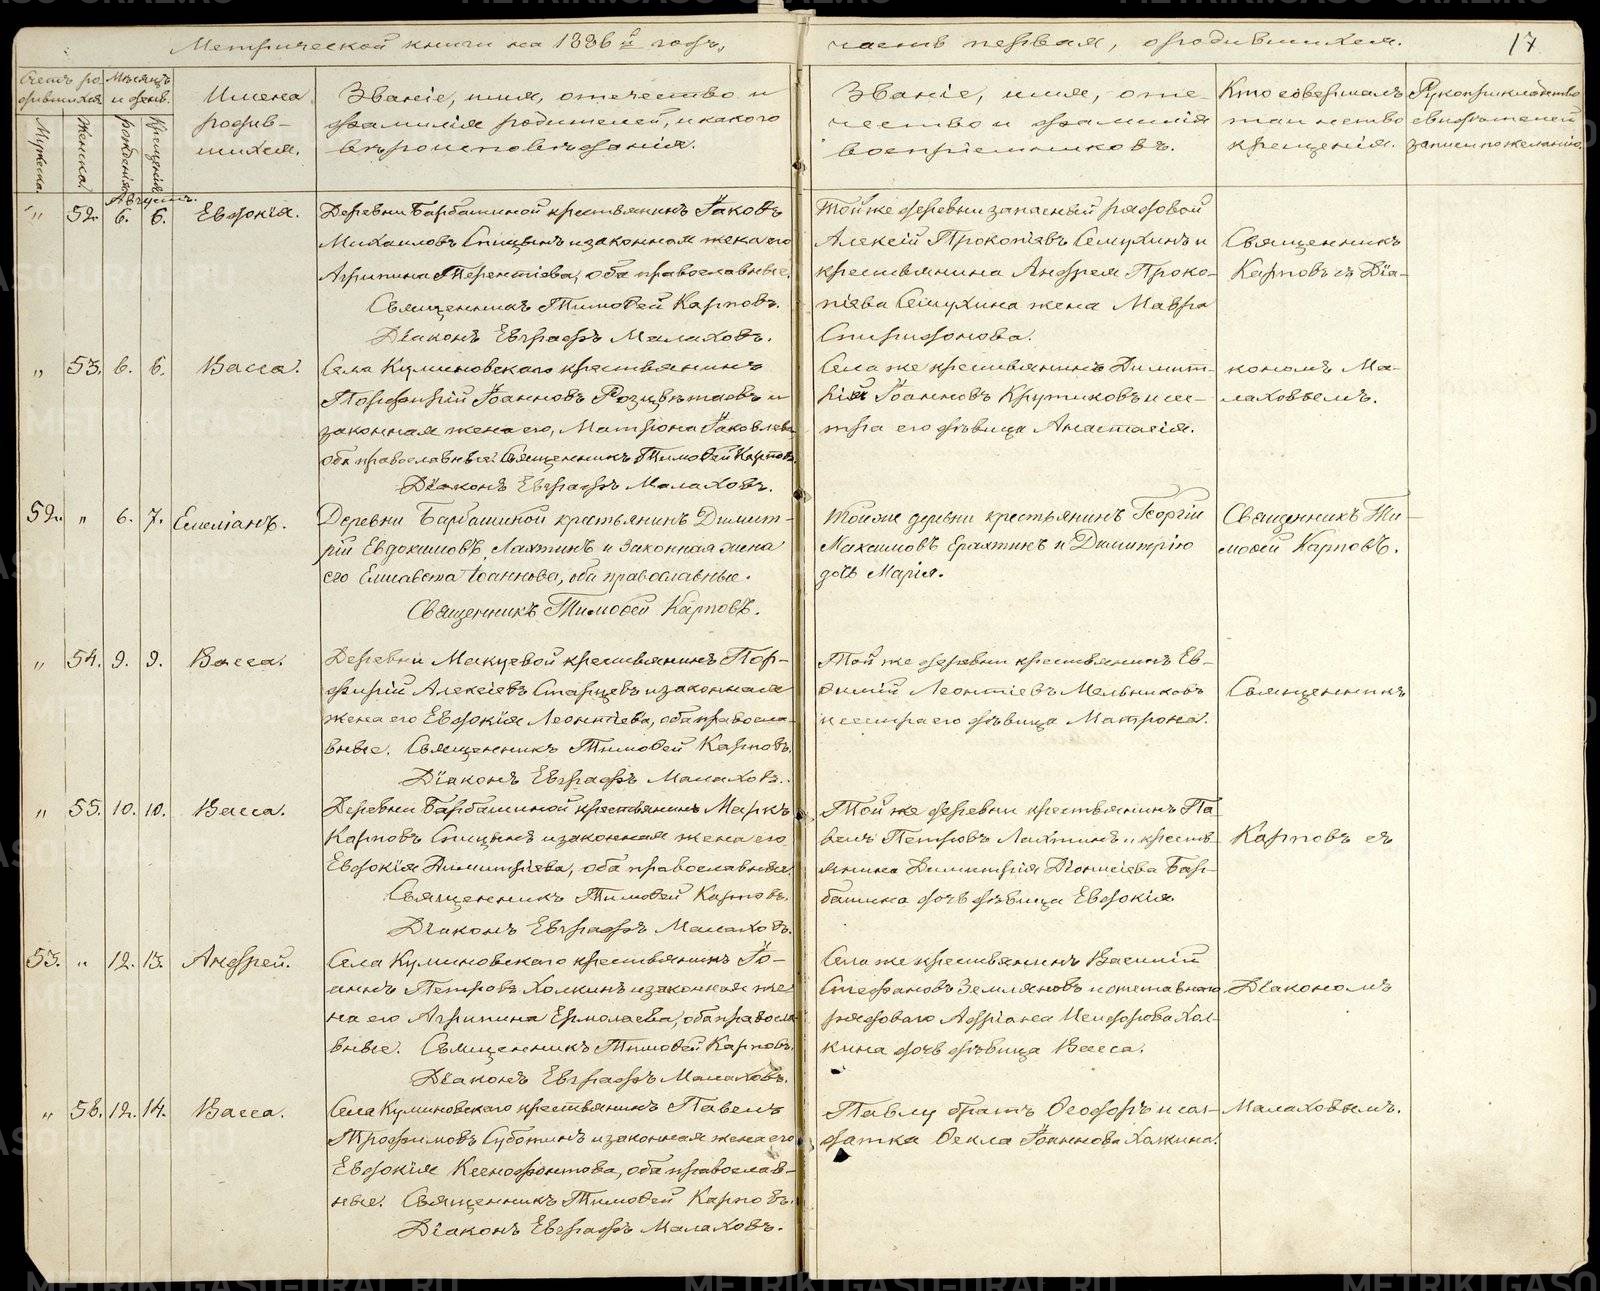 Метрической книги на 1886 й годъ,
часть первая, о родившихся.
17
Счетъ родившихся
Мѣсяцъ и день.
Имена родившихся.
Званіе, имя, отечество и
фамилія родителей, и какого
вѣроисповѣданія.
Званіе, имя, оте-
чество и фамилія
воспріемниковъ.
Кто совершалъ
таинство
крещенія.
Рукоприкладство
свидѣтелей
записи по желанію.
Мужеска.
Женска.
рожденія
Крещенія
Августъ.
" 52. 6. 6. Евдокія.
Деревни Барбашиной крестьянинъ Іаковъ
Михаиловъ Спицынъ и законная жена его
Агрипина Терентіева, оба православные.
Священникъ Тимоѳей Карповъ.
Діаконъ Евграфъ Малаховъ.
Той же деревни запасный рядовой
Алексій Прокопіевъ Семухинъ и
крестьянина Андрея Проко-
піева Семухина жена Мавра
Спиридонова.
Священникъ
Карповъ съ Діа-
" 53. 6. 6. Васса.
Села Куминовскаго крестьянинъ
Порфирій Іоанновъ Розцвѣтаевъ и
законная жена его, Матрона Іаковлева
оба православные. Священникъ Тимоѳей Карповъ
Діаконъ Евграфъ Малаховъ.
Села же крестьянинъ Димит-
рій Іоанновъ Крутиковъ и сес-
тра его дѣвица Анастасія.
кономъ Ма-
лаховымъ.
52. " 6. 7. Емеліанъ.
Деревни Барбашиной крестьянинъ Димит-
рій Евдокимовъ Лахтинъ и законная жена
его Елисавета Іоаннова, оба православные.
Священникъ Тимоѳей Карповъ.
Той же деревни крестьянинъ Георгій
Максимовъ Ерахтинъ и Димитрію
дочь Марія.
Священникъ Ти-
моѳей Карповъ.
" 54. 9. 9. Васса.
Деревни Макуевой крестьянинъ Пор-
фирій Алексіевъ Старцевъ и законная
жена его Евдокія Леонтіева, оба правосла-
вные. Священникъ Тимоѳей Карповъ.
Діаконъ Евграфъ Малаховъ.
Той же деревни крестьянинъ Ев-
ѳимій Леонтіевъ Мельниковъ
и сестра его дѣвица Матрона.
Священникъ
" 55. 10. 10. Васса.
Деревни Барбашиной крестьянинъ Маркъ
Карповъ Спицынъ и законная жена его
Евдокія Димитріева, оба православные.
Священникъ Тимоѳей Карповъ.
Діаконъ Евграфъ Малаховъ.
Той же деревни крестьянинъ Па-
велъ Петровъ Лахтинъ и кресть-
янина Димитрія Діонисіева Бар-
башина дочь дѣвица Евдокія
Карповъ съ
53. " 12. 13. Андрей.
Села Куминовскаго крестьянинъ Іо-
аннъ Петровъ Холкинъ и законная же-
на его Агрипина Ермолаева, оба правосла-
вные. Священникъ Тимоѳей Карповъ.
Діаконъ Евграфъ Малаховъ.
Села же крестьянинъ Василій
Стефановъ Земляновъ и отставнаго
рядоваго Адріана Исидорова Хол-
кина дочь дѣвица Васса.
Діакономъ
" 56. 12. 14. Васса.
Села Куминовскаго крестьянинъ Павелъ
Трофимовъ Суботинъ и законная жена его
Евдокія Ксенофонтова, оба православ-
ные. Священникъ Тимоѳей Карповъ.
Діаконъ Евграфъ Малаховъ.
Павлу братъ Ѳеодоръ и сол-
датка Ѳекла Іоаннова Холкина.
Малаховымъ.
METRIKI.GASO-URAL.RU